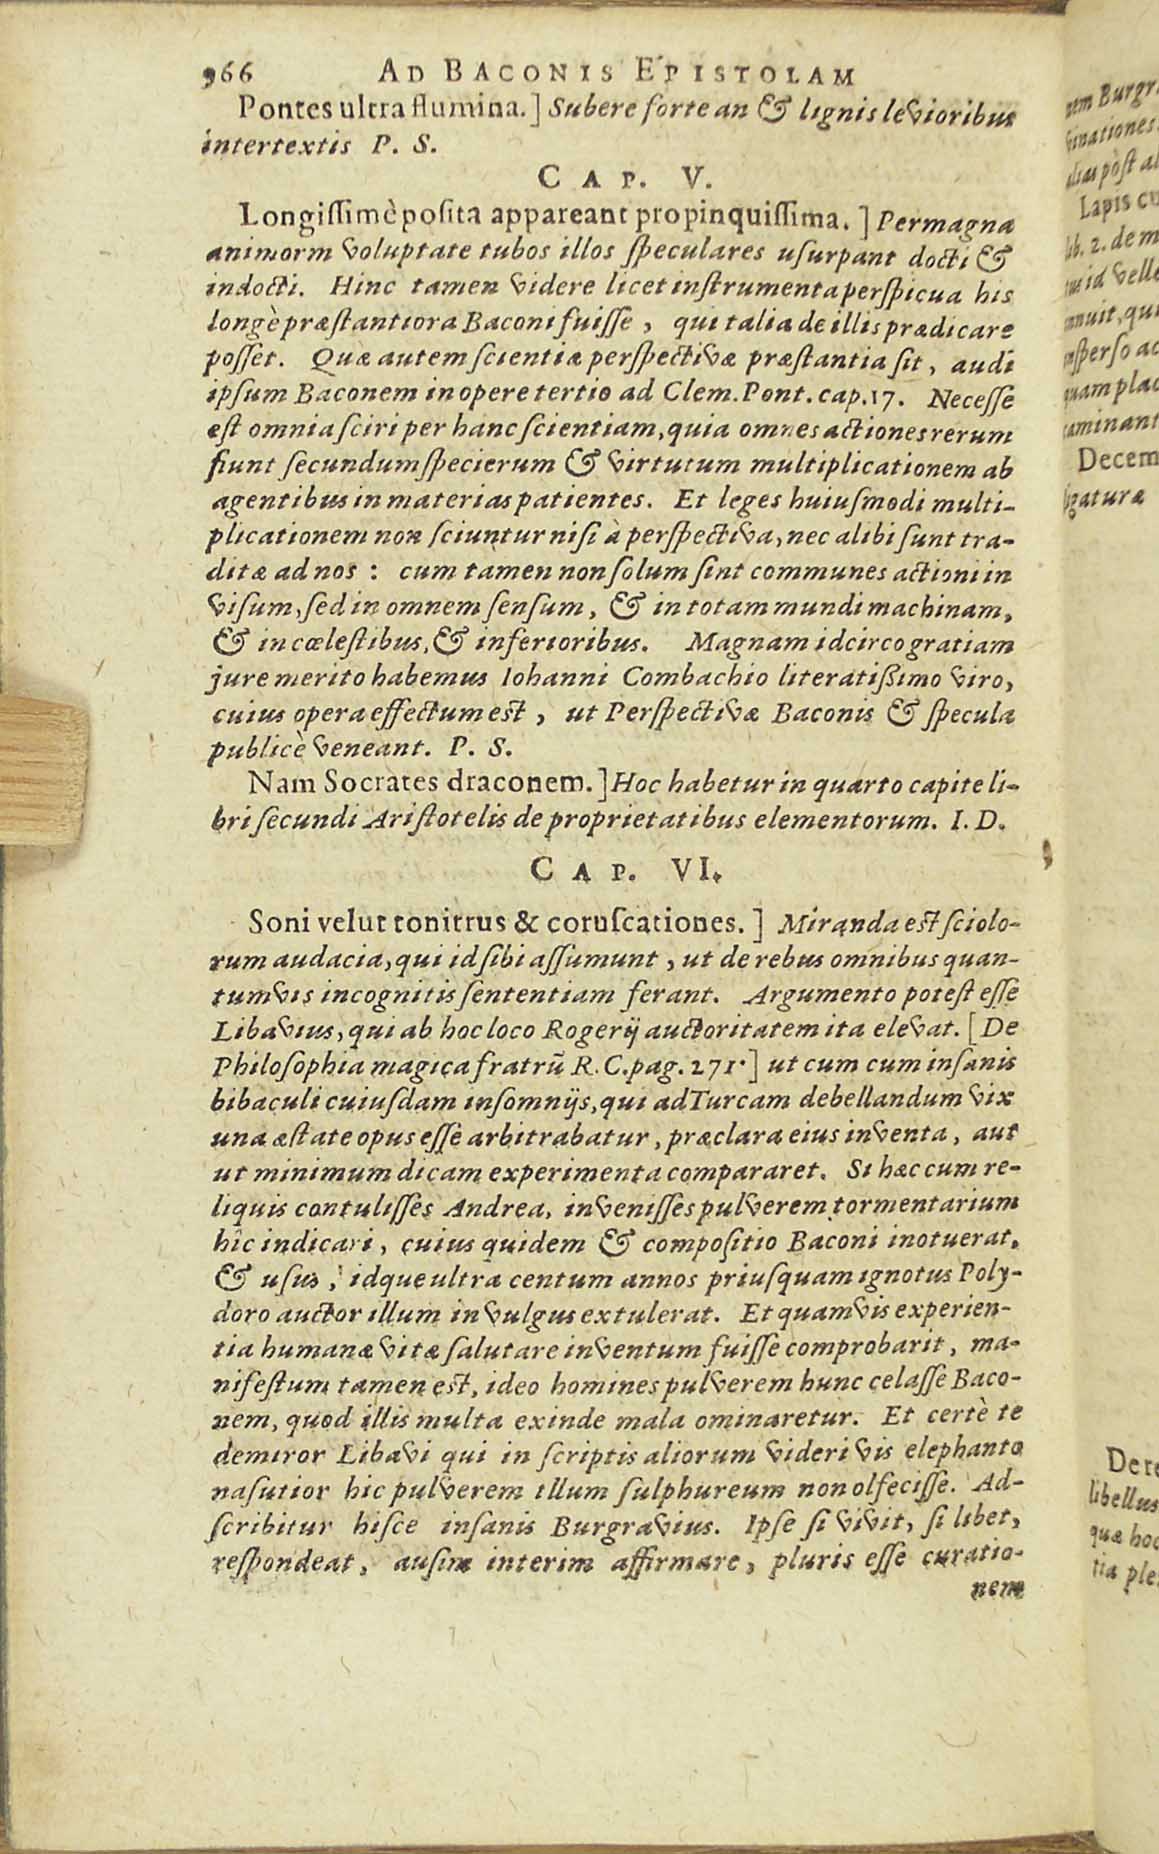 966 AD BACONIS EPISTOLAM
Pontes ultra flumina.] Subere forte an & lignis levioribus
intertextis P. S.
CAP. V.
Longissimè posita appareant propinquissima. ] Permagna
animorm voluptate tubos illos speculares usurpant docti &
indocti. Hinc tamen videre licet instrumenta perspicua his
longè præstantiora Baconi fuisse, qui talia de illis prædicare
posset. Quæ autem scientiæ perspectivæ præstantia sit, audi
ipsum Baconem in opere tertio ad Clem. Pont. cap. 17. Necesse
est omnia sciri per hanc scientiam, quia omnes actiones rerum
fiunt secundum specierum & virtutum multiplicationem ab
agentibus in materias patientes. Et leges huiusmodi multi-
plicationem non sciuntur nisi à perspectiva, nec alibi sunt tra-
ditæ ad nos : cum tamen non solum sint communes actioni in
visum, sed in omnem sensum, & in totam mundi machinam,
& in cœlestibus, & inferioribus. Magnam idcirco gratiam
jure merito habemus Iohanni Combachio literatissimo viro,
cuius opera effectum est, ut Perspectivæ Baconis & specula
publicè veneant. P. S.
Nam Socrates draconem. ] Hoc habetur in quarto capite li-
bri secundi Aristotelis de proprietatibus elementorum. I. D.
CAP. VI.
Soni velut tonitrus & coruscationes. ] Miranda est sciolo-
rum audacia, qui id sibi assumunt, ut de rebus omnibus quan-
tumvis incognitis sententiam ferant. Argumento potest esse
Libavius, qui ab hoc loco Rogerij auctoritatem ita elevat. [ De
Philosophia magica fratrũ R. C. pag. 271. ] ut cum cum insanis
bibaculi cuiusdam insomnijs, qui ad Turcam debellandum vix
una æstate opus esse arbitrabatur, præclara eius inventa, aut
ut minimum dicam experimenta compararet. Si hæc cum re-
liquis contulisses Andrea, invenisses pulverem tormentarium
hîc indicari, cuius quidem & compositio Baconi inotuerat,
& usus, idque ultra centum annos priusquam ignotus Poly-
doro auctor illum in vulgus extulerat. Et quamvis experien-
tia humanæ vitæ salutare inventum fuisse comprobarit, ma-
nifestum tamen est, ideo homines pulverem hunc celasse Baco-
nem, quod illis multa exinde mala ominaretur. Et certè te
demiror Libavi qui in scriptis aliorum videri vis elephanto
nasutior hic pulverem illum sulphureum non olfecisse. Ad-
scribitur hisce insanis Burgravius. Ipse si vivit, si libet,
respondeat, ausim interim affirmare, pluris esse curatio-
nem
nem Burgr
vinationes.
alias pòst al
Lapis cu
lib. 2. de m
id velle
nnuit, qui
nsperso ac
quam plac
aminant
Decem
ligaturæ
De re
libellus
quæ hoc
tia ple